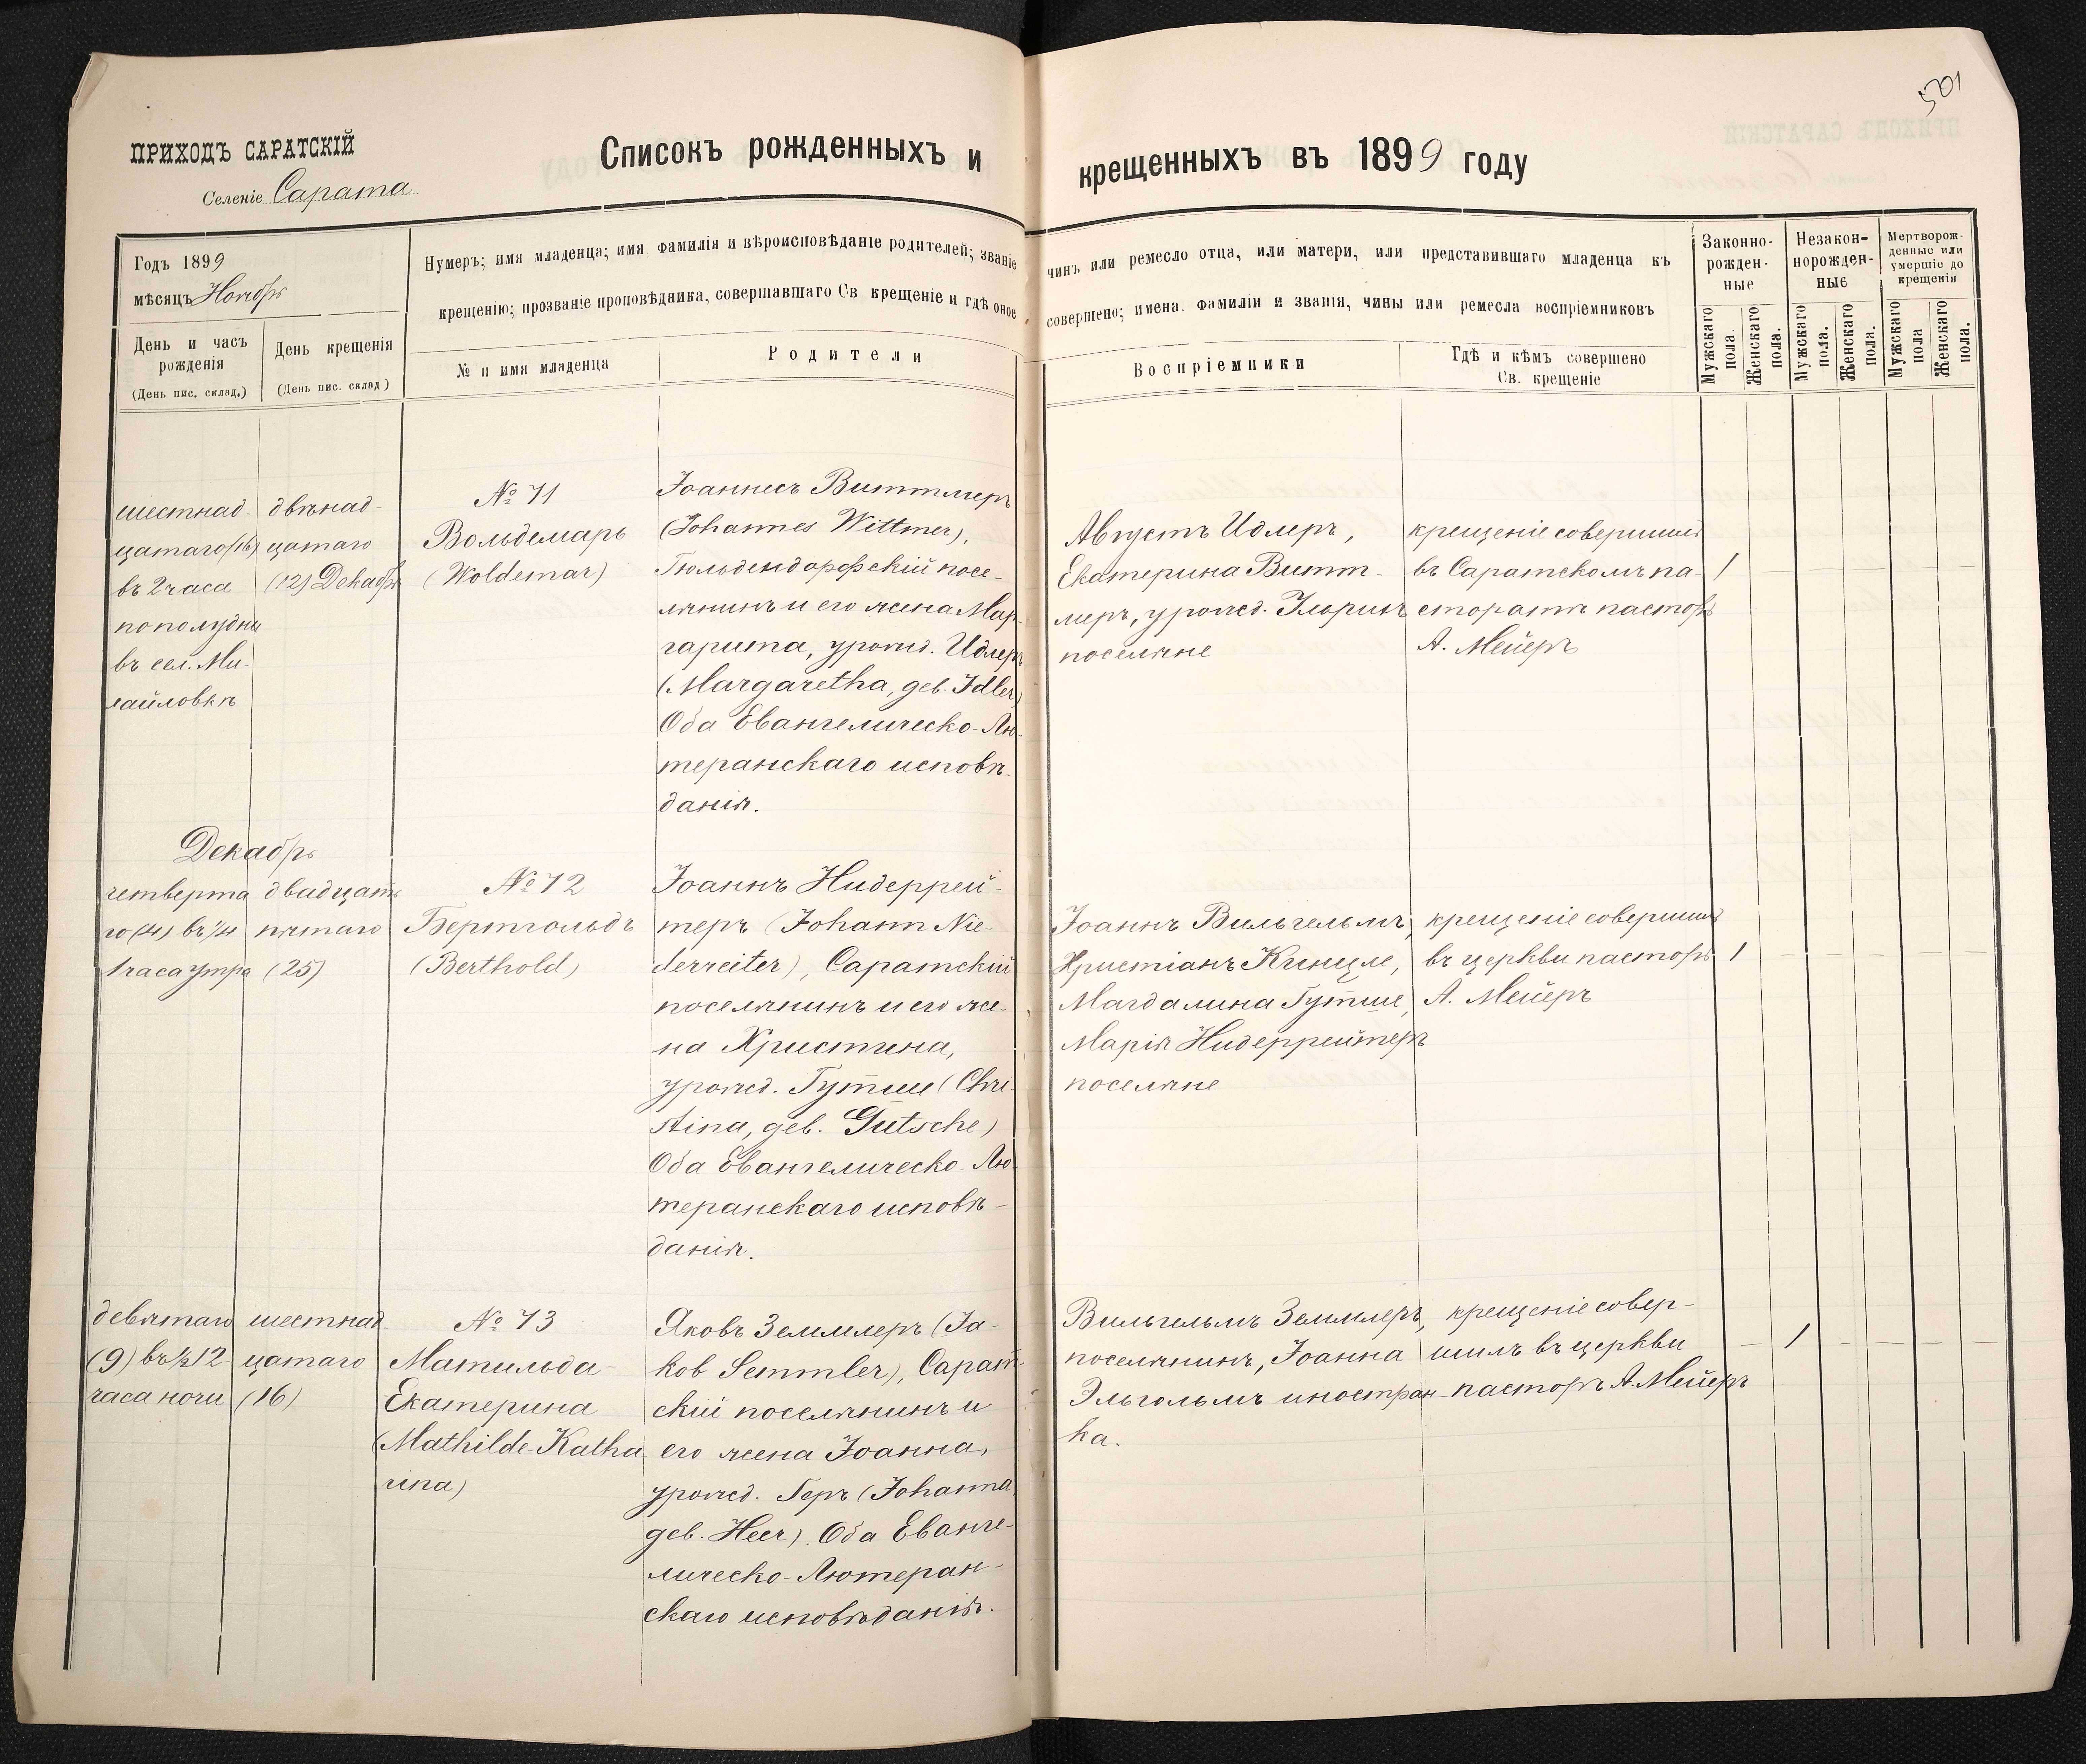 501
ПРИХОДЪ САРАТСКІЙ
Селеніе Сарата
Списокъ рожденныхъ и крещенныхъ въ 1899 году
Годъ 1899
мѣсяцъ Ноябрь
День и часъ
рожденія
(День пис. склад.)
День крещенія
(День пис. склад.)
Нумеръ; имя младенца; имя фамилія и вѣроисповѣданіе родителей; званіе
чинъ или ремесло отца, или матери, или представившаго младенца къ
крещенію; прозваніе проповѣдника, совершавшаго Св крещеніе и гдѣ оное
совершено; имена. фамиліи и званія, чины или ремесла воспріемниковъ
№ и имя младенца
Родители
Воспріемники
Гдѣ и кѣмъ совершено
Св. крещеніе
Законно-
рожден-
ные
Незакон-
норожден-
ные
Мертворож-
денные или
умершіе до
крещенія
Мужскаго
пола.
Женскаго
пола.
Мужскаго
пола.
Женскаго
пола.
Мужскаго
пола
Женскаго
пола.
шестнад-
цатаго (16)
въ 2 часа
по полудни
въ сел. Ми-
хайловкѣ
двѣнад-
цатаго
(12) Декабря
№ 71
Вольдемаръ
(Woldemar)
Іоаннесъ Виттмеръ
(Johannes Wittmer),
Гюльдендорфскій посе-
лянинъ и его жена Мар-
гарита, урожд. Идлеръ
(Margaretha, geb. Idler)
Оба Евангелическо-Лю-
теранскаго исповѣ-
данія.
Августъ Идлеръ,
Екатерина Витт-
меръ, урожд. Флоринъ
поселяне
крещеніе совершилъ
въ Саратскомъ па-
сторатѣ пасторъ
А. Мейеръ
1 — — — — —
Декабрь
четверта
го (4) въ 1/4
1 часа утра
двадцать
пятаго
(25)
№ 72
Бертгольдъ
(Berthold)
Іоаннъ Нидеррей-
теръ (Johann Nie-
derreiter), Саратскій
поселянинъ и его же-
на Христина,
урожд. Гутше (Chri-
stina, geb. Gutsche)
Оба Евангелическо-Лю-
теранскаго исповѣ-
данія.
Іоаннъ Вильгельмъ,
Христіанъ Кинцле,
Магдалина Гутше,
Марія Нидеррейтеръ
поселяне
крещеніе совершилъ
въ церкви пасторъ
А. Мейеръ
1 — — — — —
девятаго
(9) въ 1/2 12
часа ночи
шестнад-
цатаго
(16)
№ 73
Матильда-
Екатерина
(Mathilde-Katha
rina)
Яковъ Земмлеръ (Ja-
kob Semmler), Сарат-
скій поселянинъ и
его жена Іоанна,
урожд. Геръ (Johanna,
geb. Heer). Оба Еванге-
лическо-Лютеран-
скаго исповѣданія.
Вильгельмъ Земмлеръ,
поселянинъ, Іоанна
Эльгольмъ иностран-
ка.
крещеніе совер-
шилъ въ церкви
пасторъ А. Мейеръ
— 1 — — — —